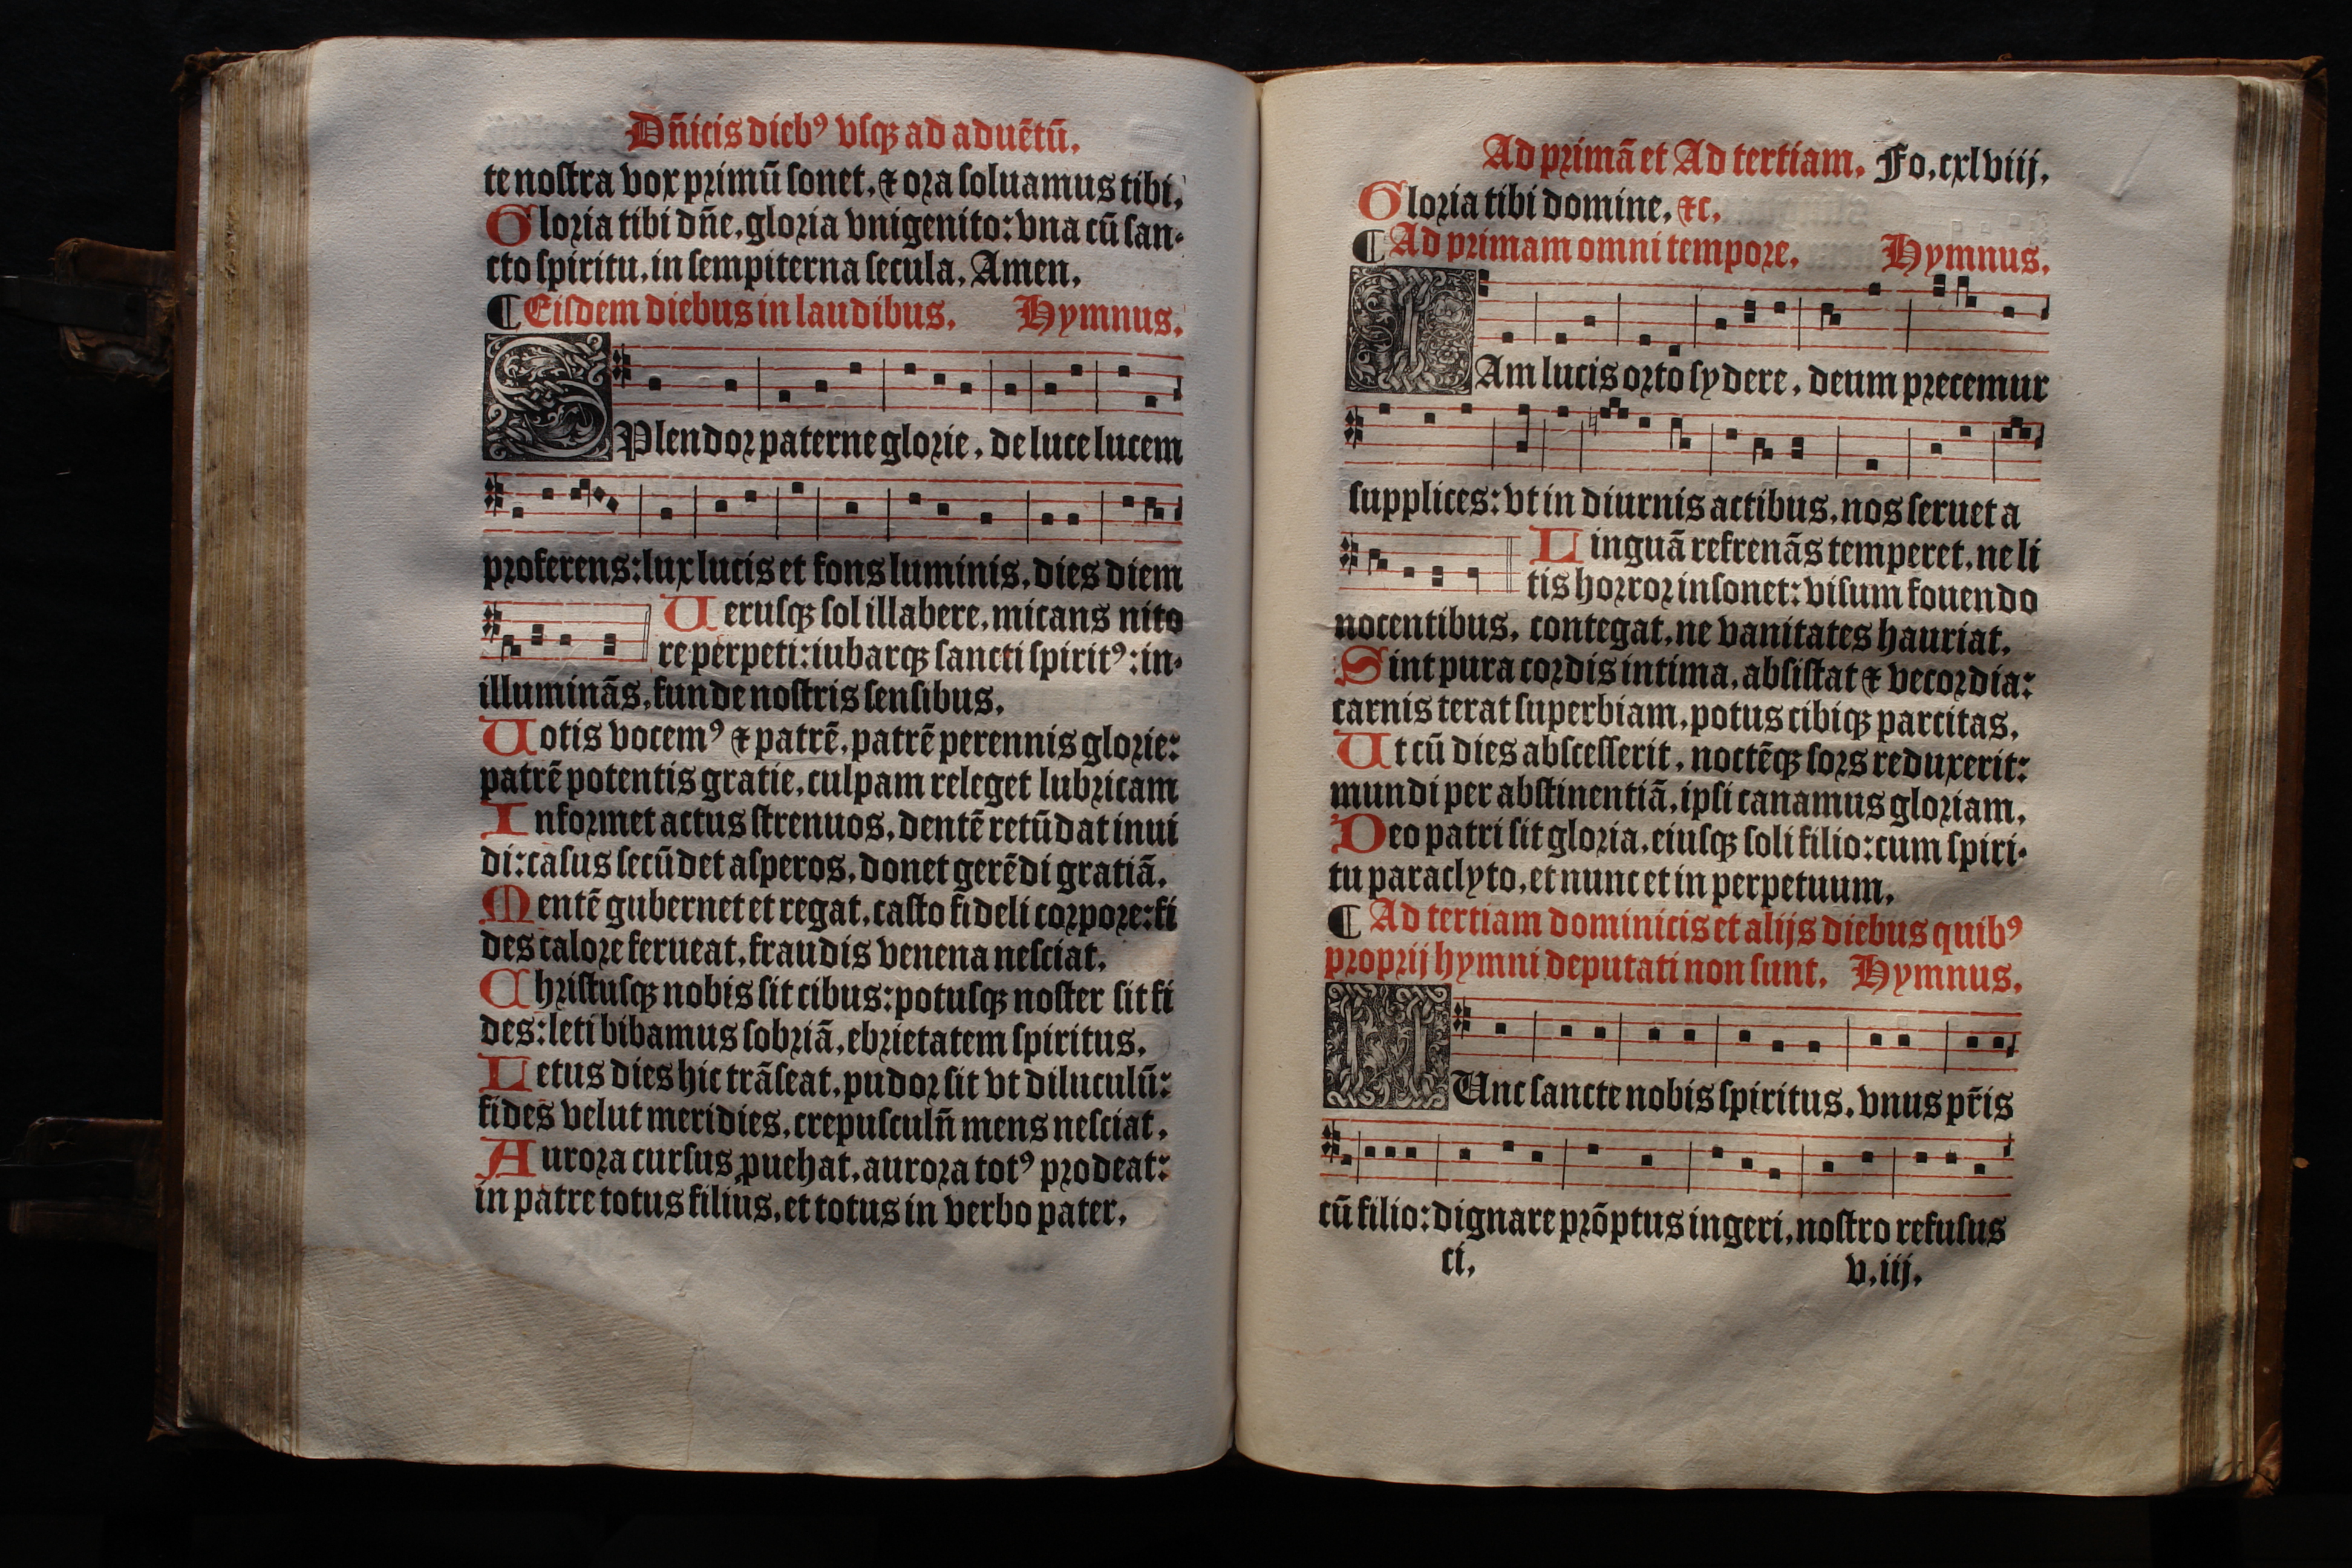 Dn̄icis dieb⁹ vſqꝫ ad aduētū.
te noſtra vox primū ſonet, ⁊ ora ſoluamus tibi.
Gloria tibi dn̄e, gloria vnigenito: vna cū ſan-
cto ſpiritu, in ſempiterna ſecula. Amen.
¶ Eiſdem diebus in laudibus. Hymnus.
SPlendor paterne glorie, de luce lucem
proferens: lux lucis et fons luminis, dies diem
Ueruſqꝫ ſol illabere, micans nito
re perpeti: iubarqꝫ ſancti ſpirit⁹: in-
illuminās, funde noſtris ſenſibus.
Uotis vocem⁹ ⁊ patrē, patrē perennis glorie:
patrē potentis gratie, culpam releget lubricam
Informet actus ſtrenuos, dentē retūdat inui
di: caſus ſecūdet aſperos, donet gerēdi gratiā.
Mentē gubernet et regat, caſto fideli corpore: fi
des calore ferueat, fraudis venena neſciat.
Chriſtuſqꝫ nobis ſit cibus: potuſqꝫ noſter ſit fi
des: leti bibamus ſobriā, ebrietatem ſpiritus.
Letus dies hic trāſeat, pudor ſit vt diluculū:
fides velut meridies, crepuſculū mens neſciat.
Aurora curſus ꝓuehat, aurora tot⁹ prodeat:
in patre totus filius, et totus in verbo pater.
Ad primā et Ad tertiam. Fo. cxlviij.
Gloria tibi domine, ⁊c.
¶ Ad primam omni tempore. Hymnus.
IAm lucis orto ſydere, deum precemur
ſupplices: vt in diurnis actibus, nos ſeruet a
Linguā refrenās temperet, ne li
tis horror inſonet: viſum fouendo
nocentibus, contegat, ne vanitates hauriat.
Sint pura cordis intima, abſiſtat ⁊ vecordia:
carnis terat ſuperbiam, potus cibiqꝫ parcitas.
Ut cū dies abſceſſerit, noctēqꝫ ſors reduxerit:
mundi per abſtinentiā, ipſi canamus gloriam.
Deo patri ſit gloria, eiuſqꝫ ſoli filio: cum ſpiri-
tu paraclyto, et nunc et in perpetuum.
¶ Ad tertiam dominicis et alijs diebus quib⁹
proprij hymni deputati non ſunt. Hymnus.
NUnc ſancte nobis ſpiritus, vnus pr̄is
cū filio: dignare prōptus ingeri, noſtro refuſus
ci. v.iij.